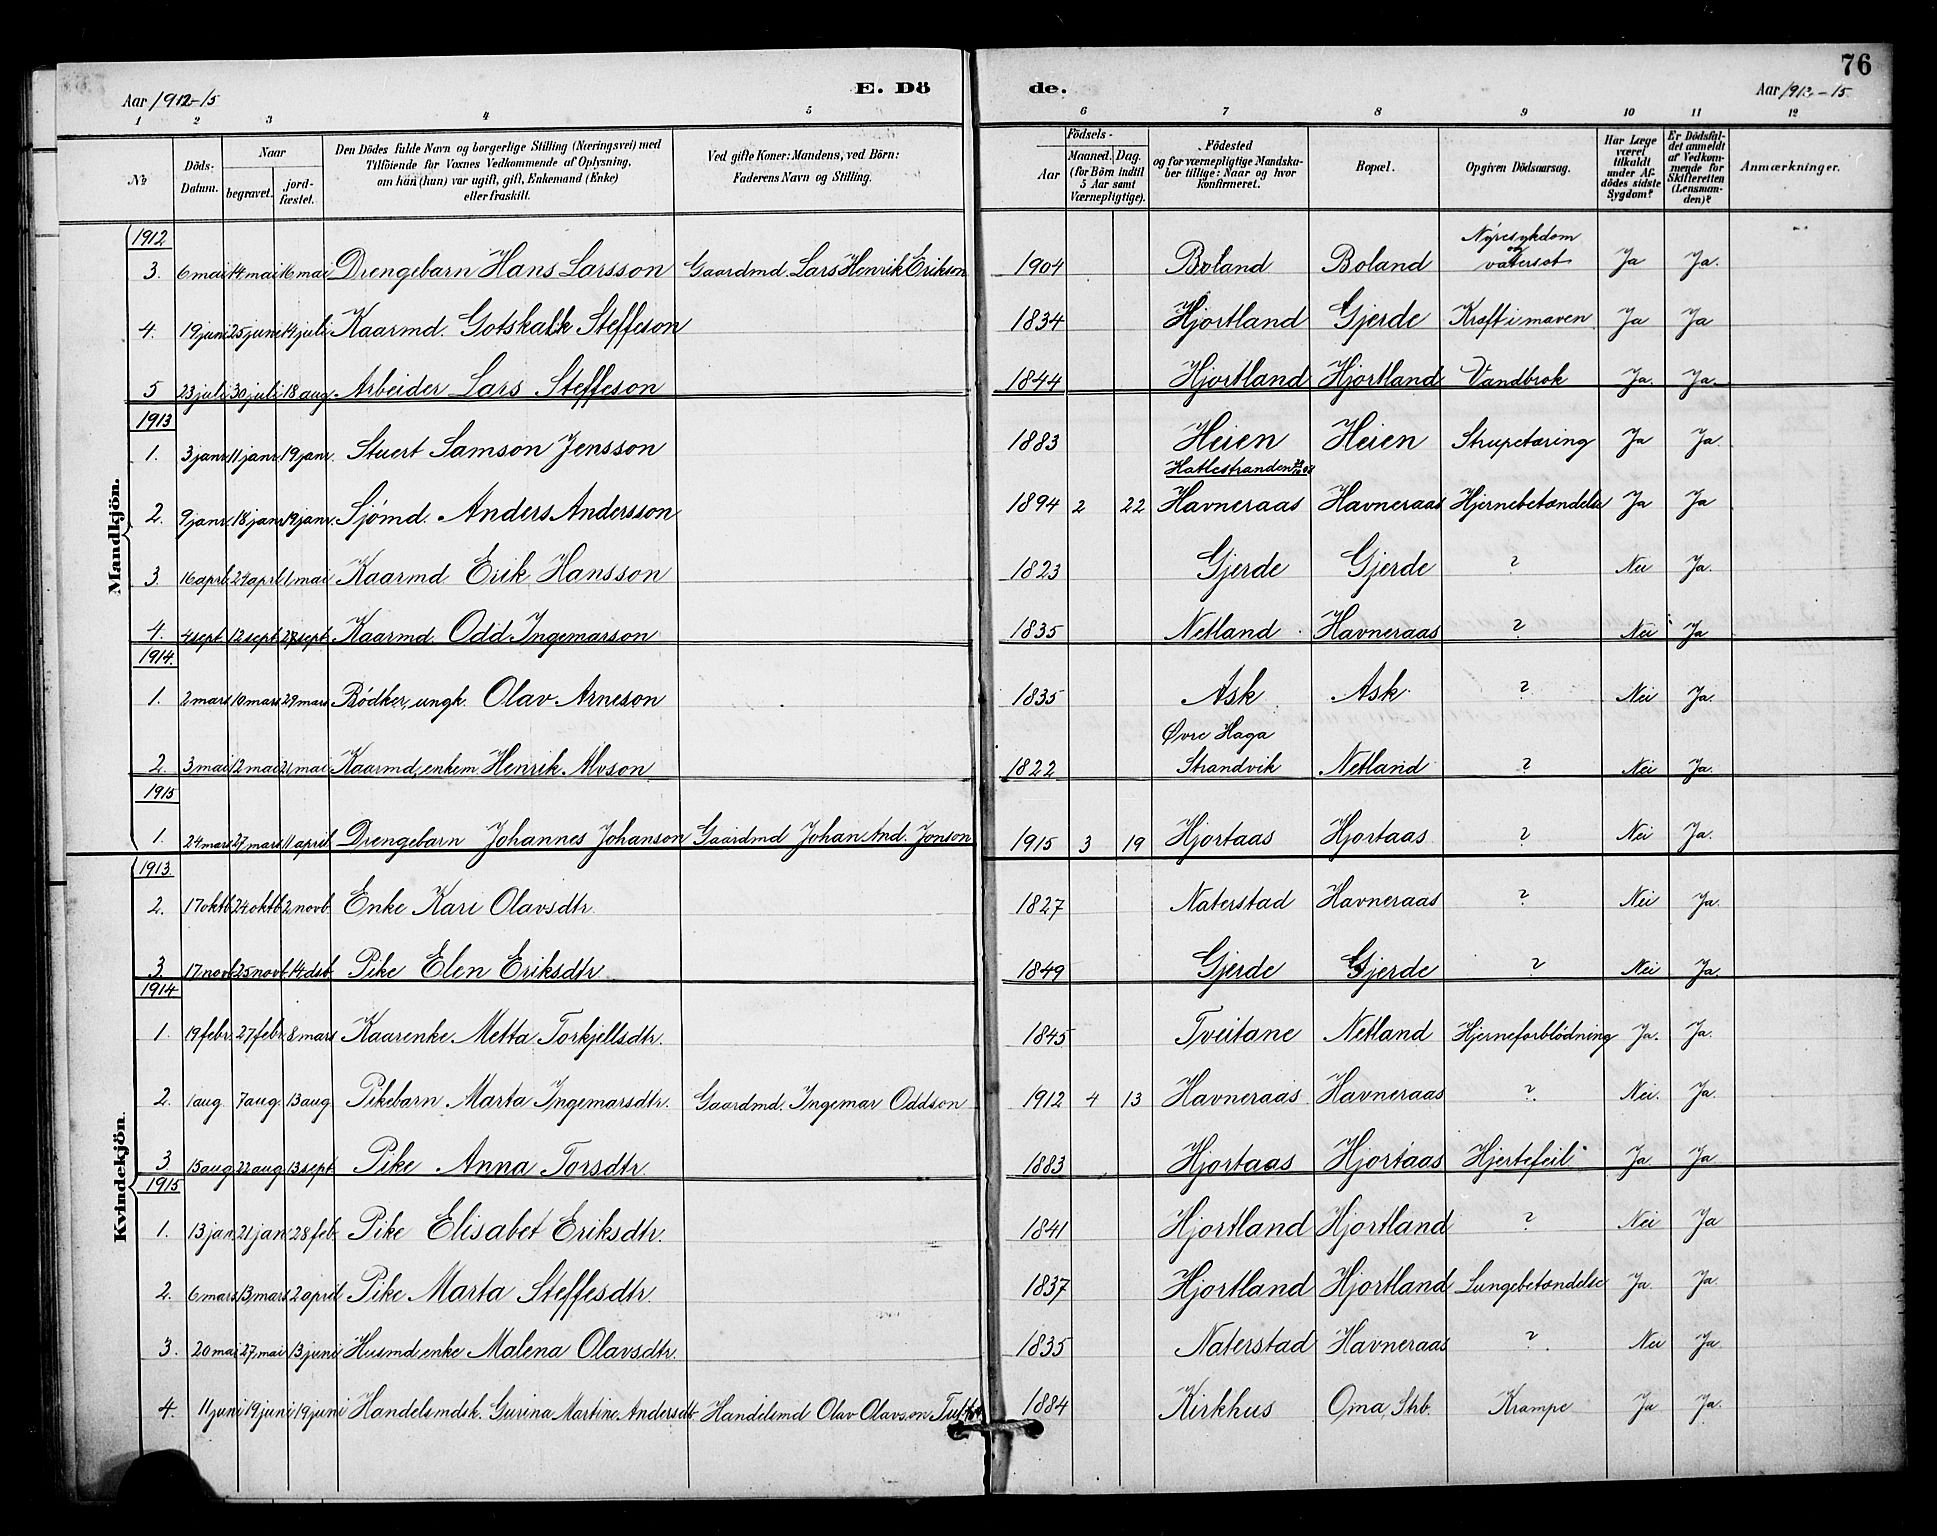 76
Aar 1912-15 E. Dö de. Aar 1912-15.
1 2 3 4 5 6 7 8 9 10 11 12
№ Döds-Datum. Naar begravet. jordfæstet. Den Dödes fulde Navn og borgerlige Stilling (Næringsvei) med Tilföiende for Voxnes Vedkommende af Oplysning, om han (hun) var ugift, gift, Enkemand (Enke) eller fraskilt. Ved gifte Koner: Mandens, ved Börn: Faderens Navn og Stilling. Födsels- Aar Maaned. Dag. (for Börn indtil 5 Aar samt Værnepligtige). Födested og for værnepligtige Mandskaber tillige: Naar og hvor konfirmeret. Bopæl. Opgiven Dödsaarsag. Har Læge været tilkaldt under Afdödes sidste Sygdom? Er Dödsfaldet anmeldt af Vedkommende for Skifteretten (Lensmanden)? Anmærkninger.
Mandkjön.
1912
3. 6 mai 14 mai 16 mai Drengebarn Hans Larsson Gaardmd. Lars Henrik Erikson 1904 Boland Boland Nyresykdom og vatersot Ja Ja.
4. 19 juni 25 june 14 juli Kaarmd. Gotskalk Steffeson 1834 Hjortland Gjerde Kræft i maven Ja Ja
5 23 juli 30 juli 18 aug. Arbeider Lars Steffeson 1844 Hjortland Hjortland Vandbrok Ja. Ja.
1913
1. 3 janr. 11 janr. 19 janr. Stuert Samson Jensson 1883 Heien Heien Strupetæring Ja Ja.
2. 9 janr. 18 janr. 19 janr. Sjómd. Anders Andersson 1894 2 22 Hatlestranden Havneraas Havneraas Hjernebetændelse Ja Ja
3. 16 aprl. 24 aprl. 1 mai Kaarmd Erik Hansson 1823 Gjerde Gjerde ? Nei Ja.
4. 4 sept. 12 sept. 28 sept. Kaarmd. Odd Ingemarson 1835 Netland Havneraas ? Nei Ja
1914.
1. 2 mars 10 mars 29 mars Bódker, ungk. Olav Arneson 1835 Ask Ask ? Nei Ja.
2. 3 mai 12 mai 21 mai Kaarmd, enkem Henrik Alvson 1822 Øvre Haga Strandvik Netland ? Nei Ja.
1915
1. 24 mars 27 mars 11 april Drengebarn Johannes Johanson Gaardmd Johan And. Jonson 1915 3 19 Hjortaas Hjortaas ? Nei Ja.
Kvindekjön.
1913.
2. 17 oktb. 24 oktb. 2 novb. Enke Kari Olavsdtr. 1827 Naterstad Havneraas ? Nei Ja.
3. 17 novb. 25 novb. 14 dsb. Pike Elen Eriksdtr. 1849 Gjerde Gjerde ? Nei Ja
1914
1. 19 febr. 27 febr. 8 mars Kaarenke Metta Torkjellsdtr. 1845 Tveitane Netland Hjerneforblödning Ja. Ja.
2. 1 aug. 7 aug. 13 aug Pikebarn Marta Ingemarsdtr. Gaardmd. Ingemar Oddson 1912 4 13 Havneraas Havneraas ? Nei. Ja.
3 15 aug 22 aug 13 sept. Pike Anna Torsdtr. 1883 Hjortaas Hjortaas Hjertefeil Ja Ja
1915
1. 13 jan 21 jan 28 feb. Pike Elisabet Eriksdtr. 1841 Hjortland Hjortland ? Nei Ja
2. 6 mars 13 mars 2 april Pike Marta Steffesdtr. 1837 Hjortland Hjortland Lungebetændelse Ja. Ja.
3. 20 mai 27 mai 13 juni Husmdenke Malena Olavsdtr. 1835 Naterstad Havneraas ? Nei Ja.
4. 11 juni 19 juni 19 juni Handelsmdsk. Gurina Martine Andersdt. Handelsmd Olav Olavson 1884 Kirkhus Oma, Strb. Krampe Ja Ja